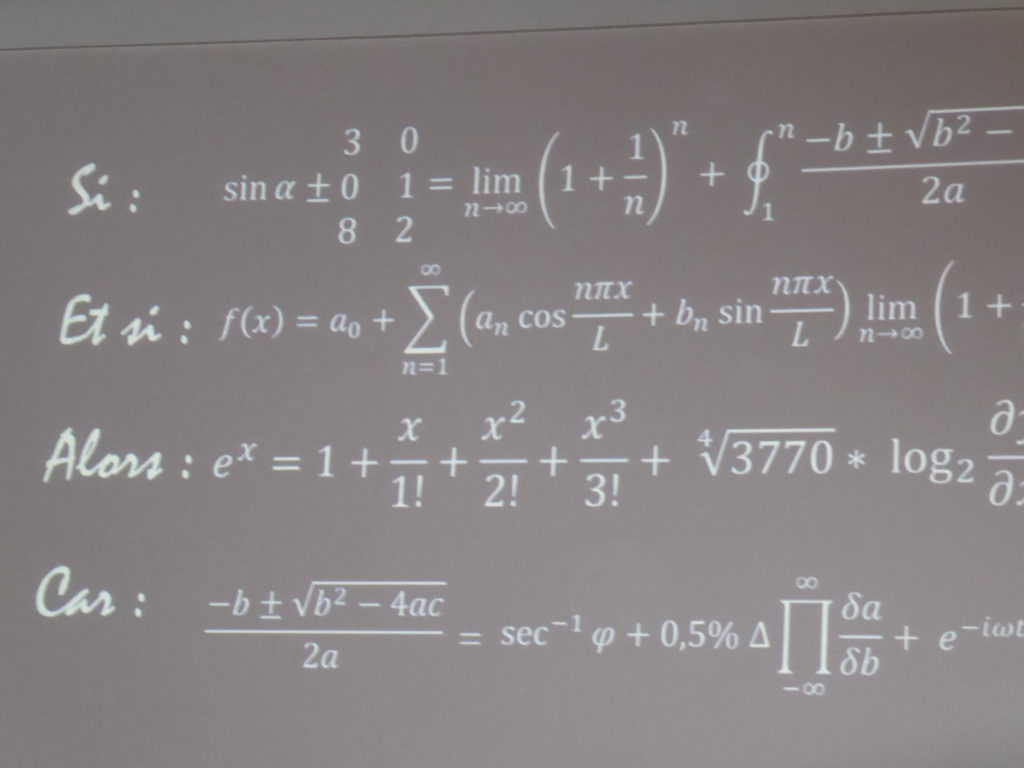 Si : sin α ± 3 0 0 1 8 2 = lim n→∞ (1 + 1/n)^n + ∮_1^n −b ± √b² − / 2a
Et si : f(x) = a₀ + ∑_{n=1}^∞ (aₙ cos nπx/L + bₙ sin nπx/L) lim n→∞ (1 +
Alors : e^x = 1 + x/1! + x²/2! + x³/3! + ∜3770 * log₂ ∂/∂
Car : −b ± √b² − 4ac / 2a = sec⁻¹ φ + 0,5% Δ ∏_{−∞}^∞ δa/δb + e^−iωt